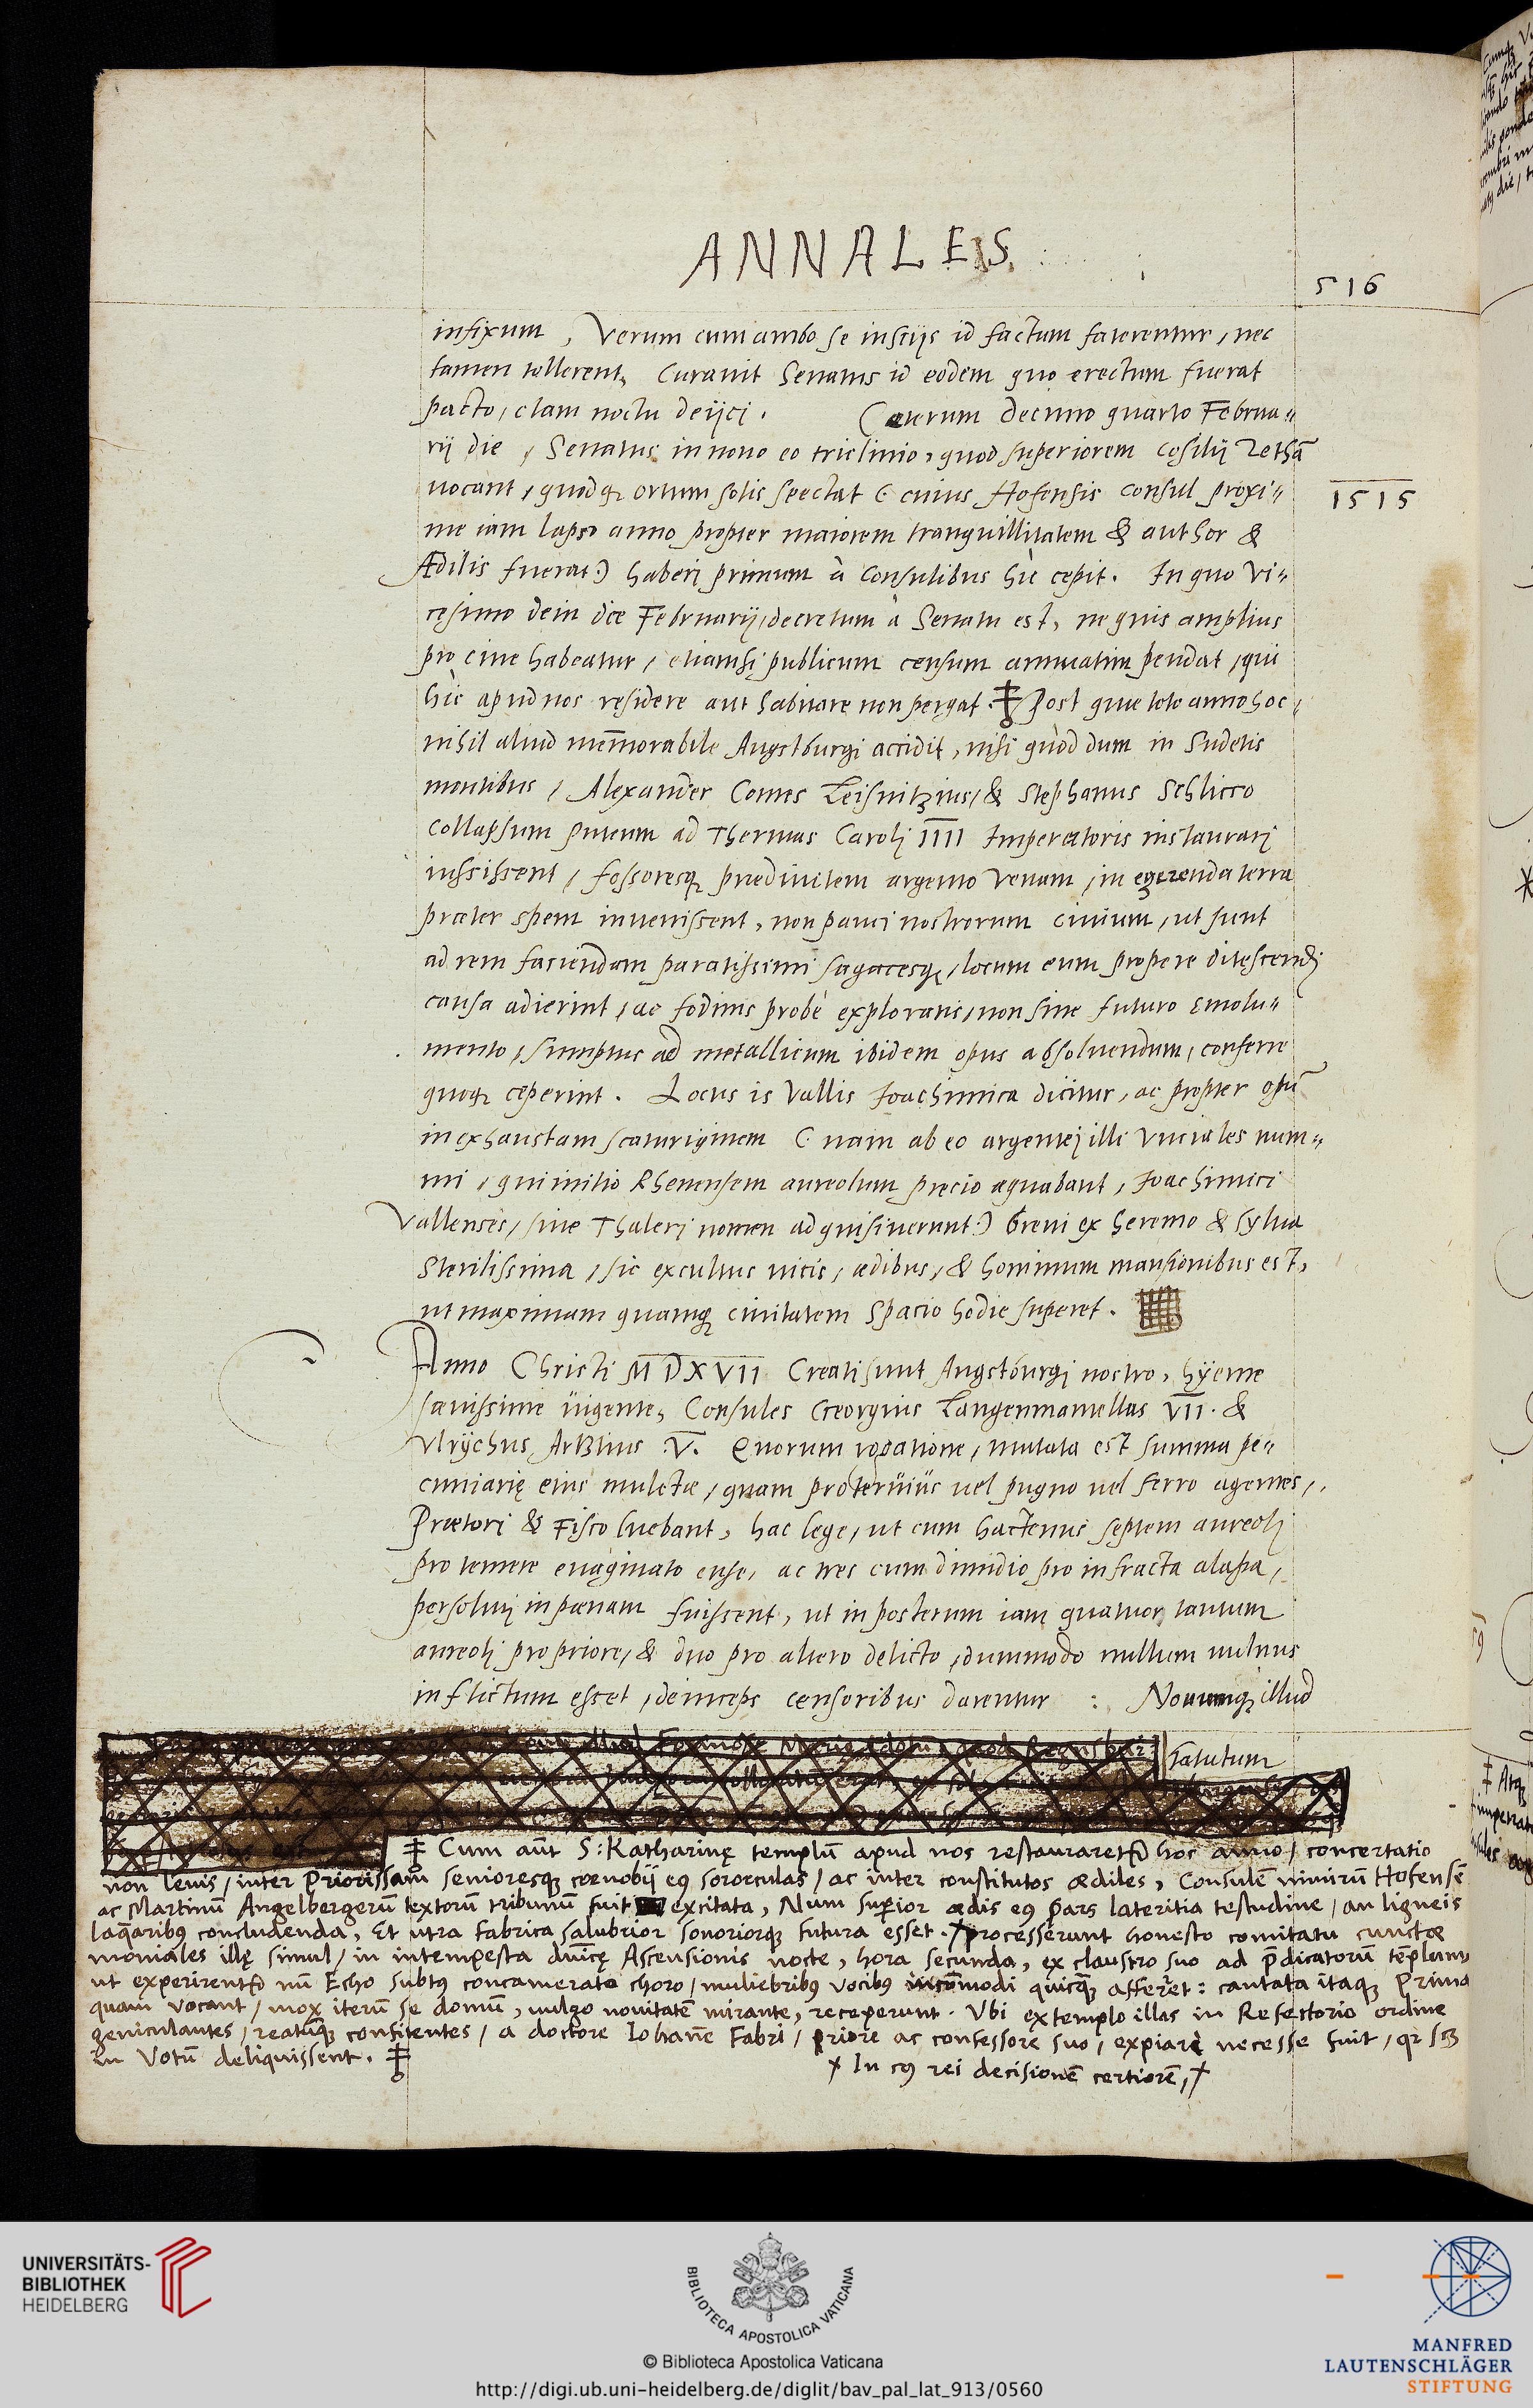 ANNALES
516
infixum, Verum cum ambo se insciis id factum faterentur, nec
tamen tollerent, Curauit Senatus id eodem quo erectum fuerat
pacto, clam noctu deijci. Cæterum decimo quarto Februa"
rij die, Senatus in nouo eo triclinio, quod superiorem cōsilij Zethā
uocant, quodq; ortum solis spectat (: cuius Hofensis Consul proxi"
1515
me iam lapso anno propter maiorem tranquillitatem & author &
Ædilis fuerat:) haberi primum à Consulibus hic cępit. In quo Vi"
cęsimo dein die Februarij, decretum à Senatu est, ne quis amplius
pro ciue habeatur, etiamsi publicum censum annuatim pendat, qui
hic apud nos residere aut habitare non pergat. ‡ Post quæ toto anno hoc,
nihil aliud memorabile Augstburgi accidit, nisi quòd dum in Sudetis
montibus, Alexander Comes Leisnitzius, & Stephanus Schlicco
collapsum puteum ad Thermas Caroli IIII Imperatoris instaurari
iussissent, fossoresq; prædiuitem argento venam, in egerenda terra
præter spem inuenissent, non pauci nostrorum ciuium, ut sunt
ad rem faciendam paratissimi sagacesq;, locum eum propere ditescendi
causa adierint, ac fodinis probè exploratis, non sine futuro emolu"
mento, sumptus ad metallicum ibidem opus absoluendum, conferre
quoq; cęperint. Locus is Vallis Ioachimica dicitur, ac propter opū
inexhaustam scaturiginem (: nam ab eo argentei illi Vnciales num"
mi, qui initio Rhenensem aureolum precio æquabant, Ioachimici
Vallenses, siue Thaleri nomen adquisiuerunt:) breui ex heremo & sylua
sterilissima, sic excultus uicis, ædibus, & hominum mansionibus est,
ut maximam quamq; ciuitatem spacio hodie superet.
Anno Christi MDXVII Creati sunt Augstburgi nostro, hyeme
sæuissime uigente, Consules Georgius Langenmantellus VII. &
Vlrychus Arßtius .V. Quorum rogatione, mutata est summa pe"
cuniarię eius mulctæ, quam proteruiùs uel pugno uel ferro agentes,
Prætori & Fisco luebant, hac lege, ut cum hactenus septem aureoli
pro temere euaginato ense, ac tres cum dimidio pro infracta alapa,
persolui in pænam fuissent, ut in posterum iam quatuor tantum
aureoli pro priore, & duo pro altero delicto, dummodo nullum uulnus
inflictum esset, deinceps censoribus darentur : Nouumq; illud
statutum
‡ Cum aūt S: Katharinę templū apud nos restauraretr hoc anno, concertatio
non leuis, inter Priorissam senioresq; cœnobij eꝰ sororculas, ac inter constitutos ædiles, Consulē nimirū Hofensē
ac Martinū Angelbergerū textorū tribunū fuit excitata, Num superior ædis eꝰ pars lateritia testudine, an ligneis
laqaribꝰ concludenda, Et utra fabrica salubrior sonoriorq; futura esset. processerunt honesto comitatu cunctæ
moniales illę simul, in intempesta dnīcę Ascensionis nocte, hora secunda, ex claustro suo ad pdicatorū templum
ut experirentr nū Echo subtꝰ concamerato choro, muliebribꝰ vocibꝰ incōmodi quicq; afferret: cantata itaq; Prima
quam vocant, mox iterū se domū, uulgo nouitatē mirante, receperunt. Vbi extemplo illas in Refectorio ordine
geniculantes, reatūq; confitentes, a doctore Iohane Fabri, priore ac confessore suo, expiare necesse fuit, qr
in Votū deliquissent. ‡
+ In cꝰ rei decisionē certiorē, +
UNIVERSITÄTS-
BIBLIOTHEK
HEIDELBERG
BIBLIOTECA APOSTOLICA VATICANA
© Biblioteca Apostolica Vaticana
MANFRED
LAUTENSCHLÄGER
STIFTUNG
http://digi.ub.uni-heidelberg.de/diglit/bav_pal_lat_913/0560